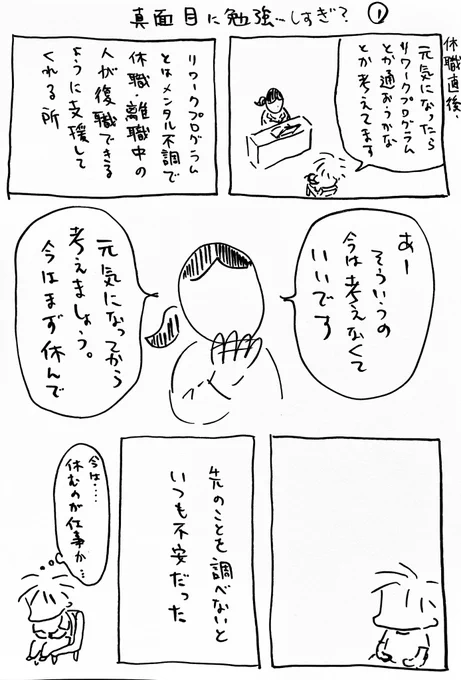 真面目に勉強…しすぎ?①
休職直後、
元気になったら
リワークプログラム
とか通おうかな
とか考えてます
リワークプログラム
とはメンタル不調で
休職・離職中の
人が復職できる
ように支援して
くれる所
あー
そういうの
今は考えなくて
いいです
元気になってから
考えましょう。
今はまず休んで
先のことを調べないと
いつも不安だった
今は…
休むのが仕事か…